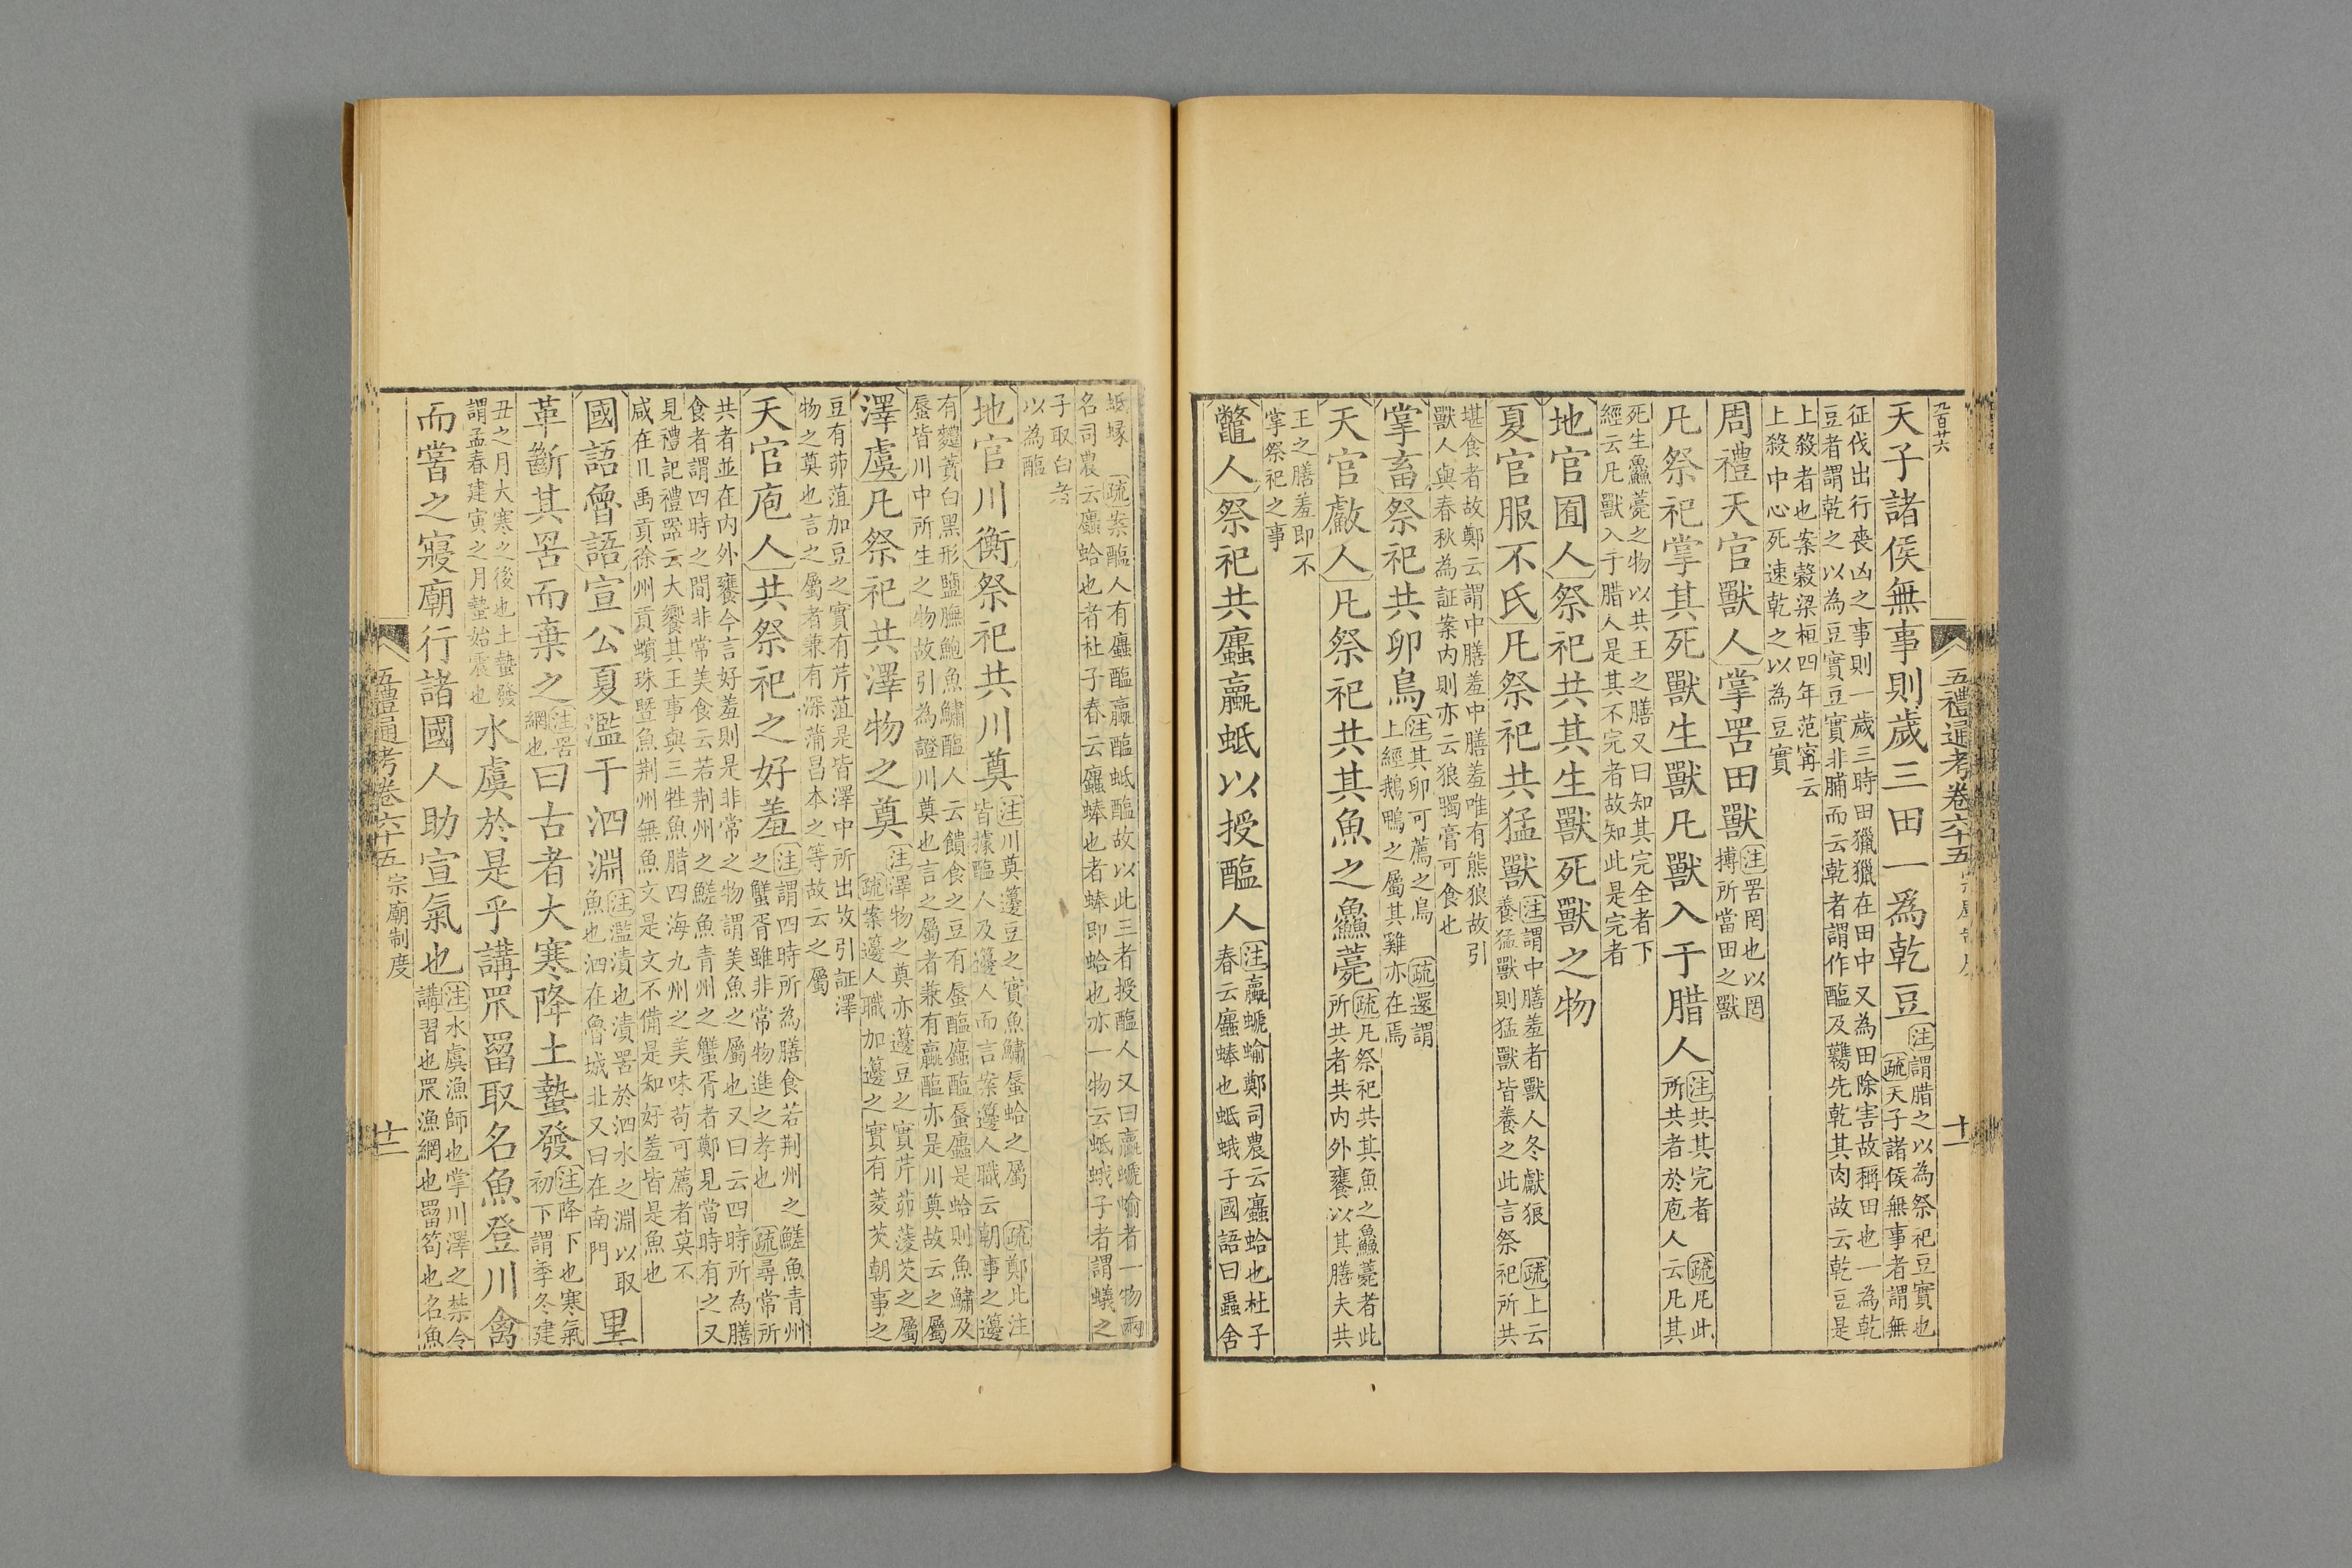 九百廿六
五禮通考卷六十五
十一
天子諸侯無事則歲三田一爲乾豆注謂腊之以為祭祀豆實也
疏天子諸侯無事者謂無
征伐出行喪凶之事則一歲三時田獵獵在田中又為田除害故稱田也一為乾
豆者謂乾之以為豆實豆實非脯而云乾者謂作醢及臡先乾其肉故云乾豆是
上殺者也案穀梁桓四年范甯云
上殺中心死速乾之以為豆實
周禮天官獸人掌罟田獸注罟罔也以罔
搏所當田之獸
凡祭祀掌其死獸生獸凡獸入于腊人注共其完者 疏凡此
所共者於庖人云凡其
死生鱻薧之物以共王之膳又曰知其完全者下
經云凡獸入于腊人是其不完者故知此是完者
地官囿人祭祀共其生獸死獸之物
夏官服不氏凡祭祀共猛獸注謂中膳羞者獸人冬獻狼 疏上云
養猛獸則猛獸皆養之此言祭祀所共
堪食者故鄭云謂中膳羞中膳羞唯有熊狼故引
獸人與春秋為証案內則亦云狼臅膏可食也
掌畜祭祀共卵鳥注其卵可薦之鳥 疏還謂
上經鵝鴨之屬其雞亦在焉
天官䱷人凡祭祀共其魚之鱻薧疏凡祭祀共其魚之鱻薧者此
所共者共內外饔以其膳夫共
王之膳羞即不
掌祭祀之事
鼈人祭祀共蠯蠃蚳以授醢人注蠃螔蝓鄭司農云蠯蛤也杜子
春云蠯蜯也蚳蛾子國語曰蟲舍
蚳蝝 疏案醢人有蠯醢蠃醢蚳醢故以此三者授醢人又曰蠃螔蝓者一物兩
名司農云蠯蛤也者杜子春云蠯蜯也者蜯即蛤也亦一物云蚳蛾子者謂蟻之
子取白者
以為醢
地官川衡祭祀共川奠注川奠籩豆之實魚鱐蜃蛤之屬 疏鄭此注
皆據醢人及籩人而言案籩人職云朝事之籩
有麷蕡白黑形鹽膴鮑魚鱐醢人云饋食之豆有蜃醢蠯醢蜃蠯是蛤則魚鱐及
蜃皆川中所生之物故引為證川奠也言之屬者兼有蠃醢亦是川奠故云之屬
澤虞凡祭祀共澤物之奠注澤物之奠亦籩豆之實芹茆蓤芡之屬
疏案籩人職加籩之實有菱芡朝事之
豆有茆菹加豆之實有芹菹是皆澤中所出故引証澤
物之奠也言之屬者兼有深蒲昌本之等故云之屬
天官庖人共祭祀之好羞注謂四時所為膳食若荆州之䱹魚青州
之蟹胥雖非常物進之孝也 疏尋常所
共者並在內外饔今言好羞則是非常之物謂美魚之屬也又曰云四時所為膳
食者謂四時之間非常美食云若荆州之䱹魚青州之蟹胥者鄭見當時有之又
見禮記禮器云大饗其王事與三牲魚腊四海九州之美味苟可薦者莫不
咸在又禹貢徐州貢蠙珠曁魚荆州無魚文是文不備是知好羞皆是魚也
國語魯語宣公夏濫于泗淵注濫漬也漬罟於泗水之淵以取
魚也泗在魯城北又曰在南門里
革斷其罟而棄之注罟
網也曰古者大寒降土蟄發注降下也寒氣
初下謂季冬建
丑之月大寒之後也土蟄發
謂孟春建寅之月蟄始震也水虞於是乎講罛罶取名魚登川禽
而嘗之寢廟行諸國人助宣氣也注水虞漁師也掌川澤之禁令
講習也罛漁網也罶笱也名魚
五禮通考卷六十五 宗廟制度
十二